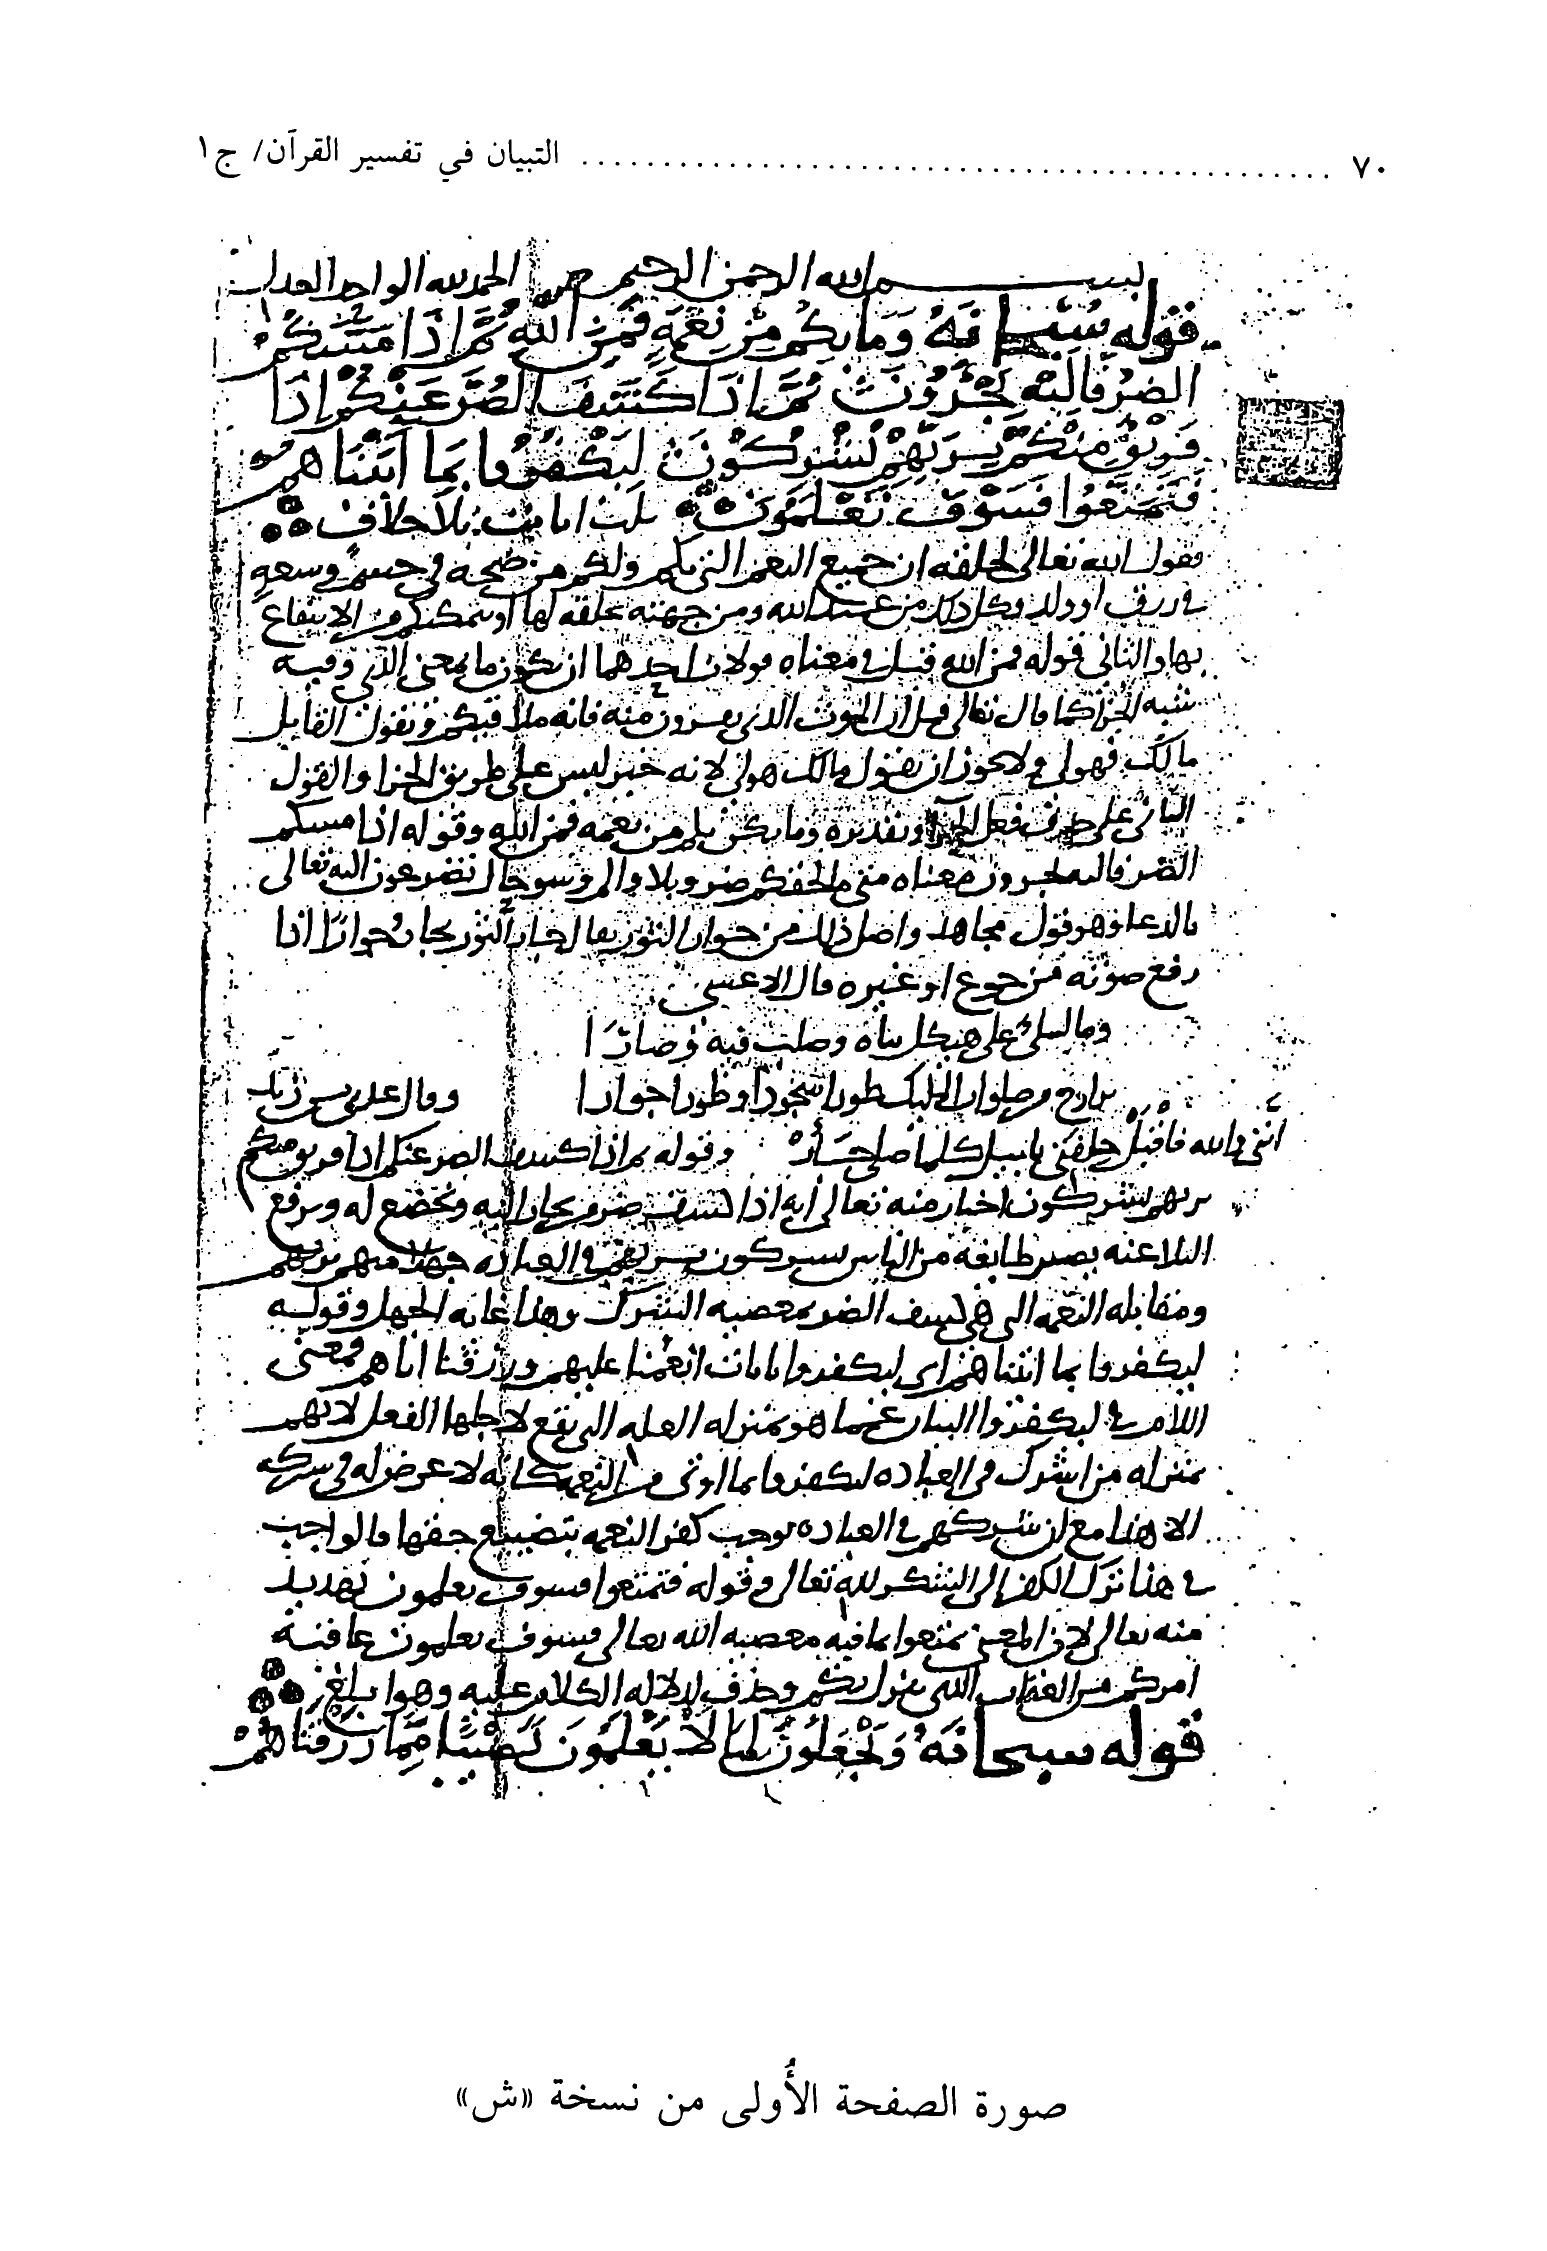 ٧٠ ........................................ التبيان في تفسير القرآن/ ج١
بسم الله الرحمن الرحيم الحمد لله الواحد العدل
قوله سُبحانَهُ وَمَا بِكُم مِّن نِعْمَةٍ فَمِنَ اللهِ ثُمَّ إِذَا مَسَّكُمُ
الضُرُّ فَإِلَيْهِ تَجْئَرُونَ ثُمَّ إِذَا كَشَفَ الضُّرَّ عَنْكُمْ إِذَا
فَرِيقٌ مِنْكُمْ بِرَبِّهِمْ يُشْرِكُونَ لِيَكْفُرُوا بِمَا آتَيْنَاهُمْ
فَتَمَتَّعُوا فَسَوْفَ تَعْلَمُونَ ثلث ايات بلا خلاف
يقول الله تعالى لخلقه ان جميع النعم التي بكم ولكم من صحه في جسم وسعةٍ
في رزق او ولد وكل ذلك من عند الله ومن جهته بخلقه لها او بتمكينكم من الانتفاع
بها والثاني قوله فمن الله قيل في معناه قولان احدهما ان يكون ما بمعنى الذي وفيه
شبه الجزا كما قال تعالى قل ان الموت الذي تفرون منه فانه ملاقيكم ويقول القايل
مالك فهو لي ولا يجوز ان يقول مالك هو لي لانه خبر ليس على طريق الجزا والقول
الثاني على حذف فعل الجزا وتقديره وما يكن بكم من نعمه فمن الله وقوله اذا مسكم
الضر فاليه تجرون معناه متى يلحقكم ضر وبلا والم وسو حال تضرعون اليه تعالى
بالدعا وهو قول مجاهد واصل ذلك من جوار الثور يقال جار الثور يجار جوارًا اذا
رفع صوته من جوع او غيره قال الاعشى
وما ايبلي على هيكل بناه وصلب فيه وصارَا
يراوح من صلوات المليك طورا سجودا وطورا جوارا وقال عدي بن زيد
انني والله فاقبل حلفتي بابيل كلما صلى جأر وقوله ثم اذا كشف الضر عنكم اذا فريق منكم
بربهم يشركون اخبار منه تعالى انه اذا كشف ضر من يجار اليه ويخضع له ويرفع
البلا عنه يصير طايفه من الناس يشركون بربهم في العباده جهلا منهم بربهم
ومقابله النعمه التي هي كشف الضر بمعصيه الشرك وهذا غايه الجهل وقوله
ليكفروا بما اتيناهم اي ليكفروا باياتنا انعمنا عليهم ورزقنا اياهم فمعنى
اللام في ليكفروا البيان عما هو بمنزله العله التي يقع لاجلها الفعل لانهم
بمنزله من اشرك في العباده ليكفروا بما اوتي من النعمه كانه لا غرض له في شركه
الا هذا مع ان شركهم في العباده يوجب كفر النعمه بتضييع حقها فالواجب
في هذا ترك الكفر الى الشكر لله تعالى وقوله فتمتعوا فسوف تعلمون تهديد
منه تعالى لان المعنى تمتعوا بما فيه معصيه الله تعالى فسوف تعلمون عاقبة
امركم من العقاب الذي ينزل بكم وحذف لدلاله الكلام عليه وهو ابلغ
قوله سبحانَهُ وَيَجْعَلُونَ لِمَا لَا يَعْلَمُونَ نَصِيبًا مِمَّا رَزَقْنَاهُمْ
صورة الصفحة الأُولى من نسخة «ش»